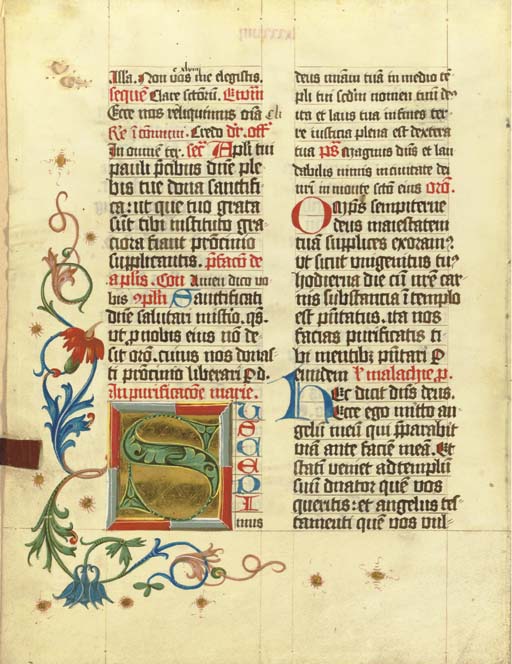 Illa. Non vos me elegistis.
sequēn Clare sctōrum. Ewm
Ecce nos reliquimus oīa
Cōmuni. Credo dīc. off
In omnem ter. Apli tui
pauli p̄cibus dn̄e ple
bis tue dona sanctifi
ca: ut que tuo grata
sūt tibi instituto gra
ciora fiant pr̄ocinio
supplicantis. p̄facō de
aplis. Cōn Amen dico vo
bis Sanctificati
dn̄e salutari misterio. qs̄
ut p nobis eius nō de
sit orō. cuius nos donas-
ti pr̄ocinio liberari P d.
In purificacōe marie.
SUSCEPI
mus
deus miam tuā in medio tē
pli tui sed'm nomen tuū de'
ita et laus tua in fines ter-
re iusticia plena est dextera
tua p̄s Magnus dn̄s et lau
dabilis nimis in civitate dei
nr̄i in monte sctō eius orō.
Omps sempiterne
deus maiestatem
tuā supplices exoram'.
ut sicut unigenitus tu'
hodierna die cū nr̄e car
nis substancia ī templo
est pn̄tatus. ita nos
facias purificatis ti-
bi mentibz pn̄tari P
eundem malachie p.
Hec dicit dn̄s deus.
Ecce ego mitto an
gelū meū qui p̄parabit
viam ante faciē meā. Et
stati veniet ad templū
suū dn̄ator quē vos
queritis: et angelus tes-
tamenti quē vos vul-